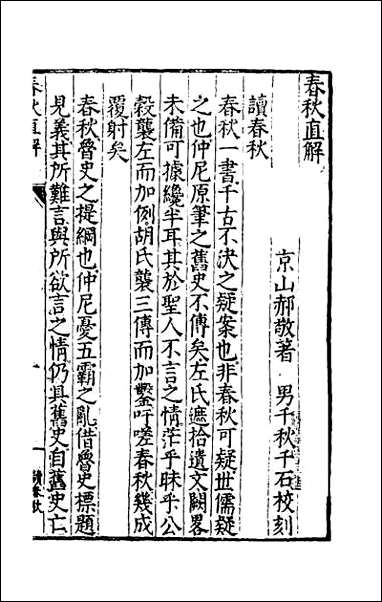 春秋直解
京山郝敬著　男千秋千石校刻
讀春秋
春秋一書千古不決之疑案也非春秋可疑世儒疑
之也仲尼原筆之舊史不傳矣左氏摭拾遺文闕畧
未備可據纔半耳其於聖人不言之情茫乎昧乎公
穀襲左而加例胡氏襲三傳而加鑿吁嗟春秋幾成
覆射矣
春秋魯史之提綱也仲尼憂五霸之亂借魯史標題
見義其所難言與所欲言之情仍具舊史自舊史亡
春秋直解
讀春秋